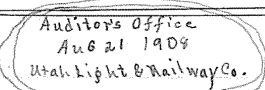 Auditor's Office
Aug 21 1908
Utah Light & Railway Co.